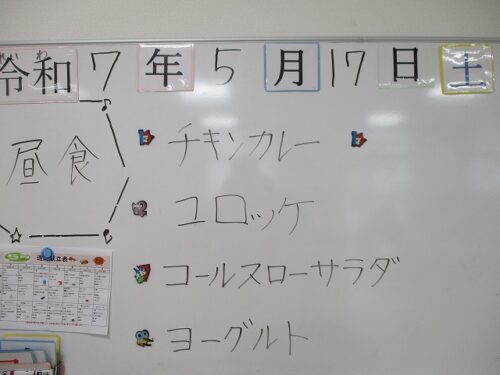 令和7年5月17日土
昼食
チキンカレー
コロッケ
コールスローサラダ
ヨーグルト